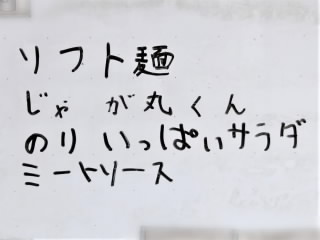 ソフト麺
じゃが丸くん
のりいっぱいサラダ
ミートソース